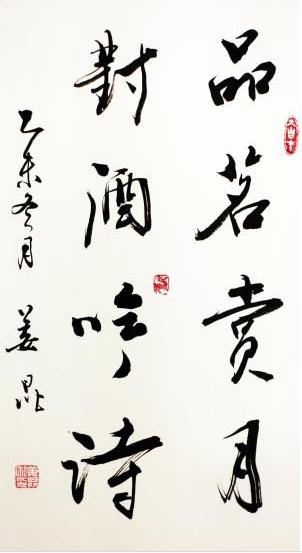 品茗賞月
對酒吟诗
乙未冬月 姜鼎